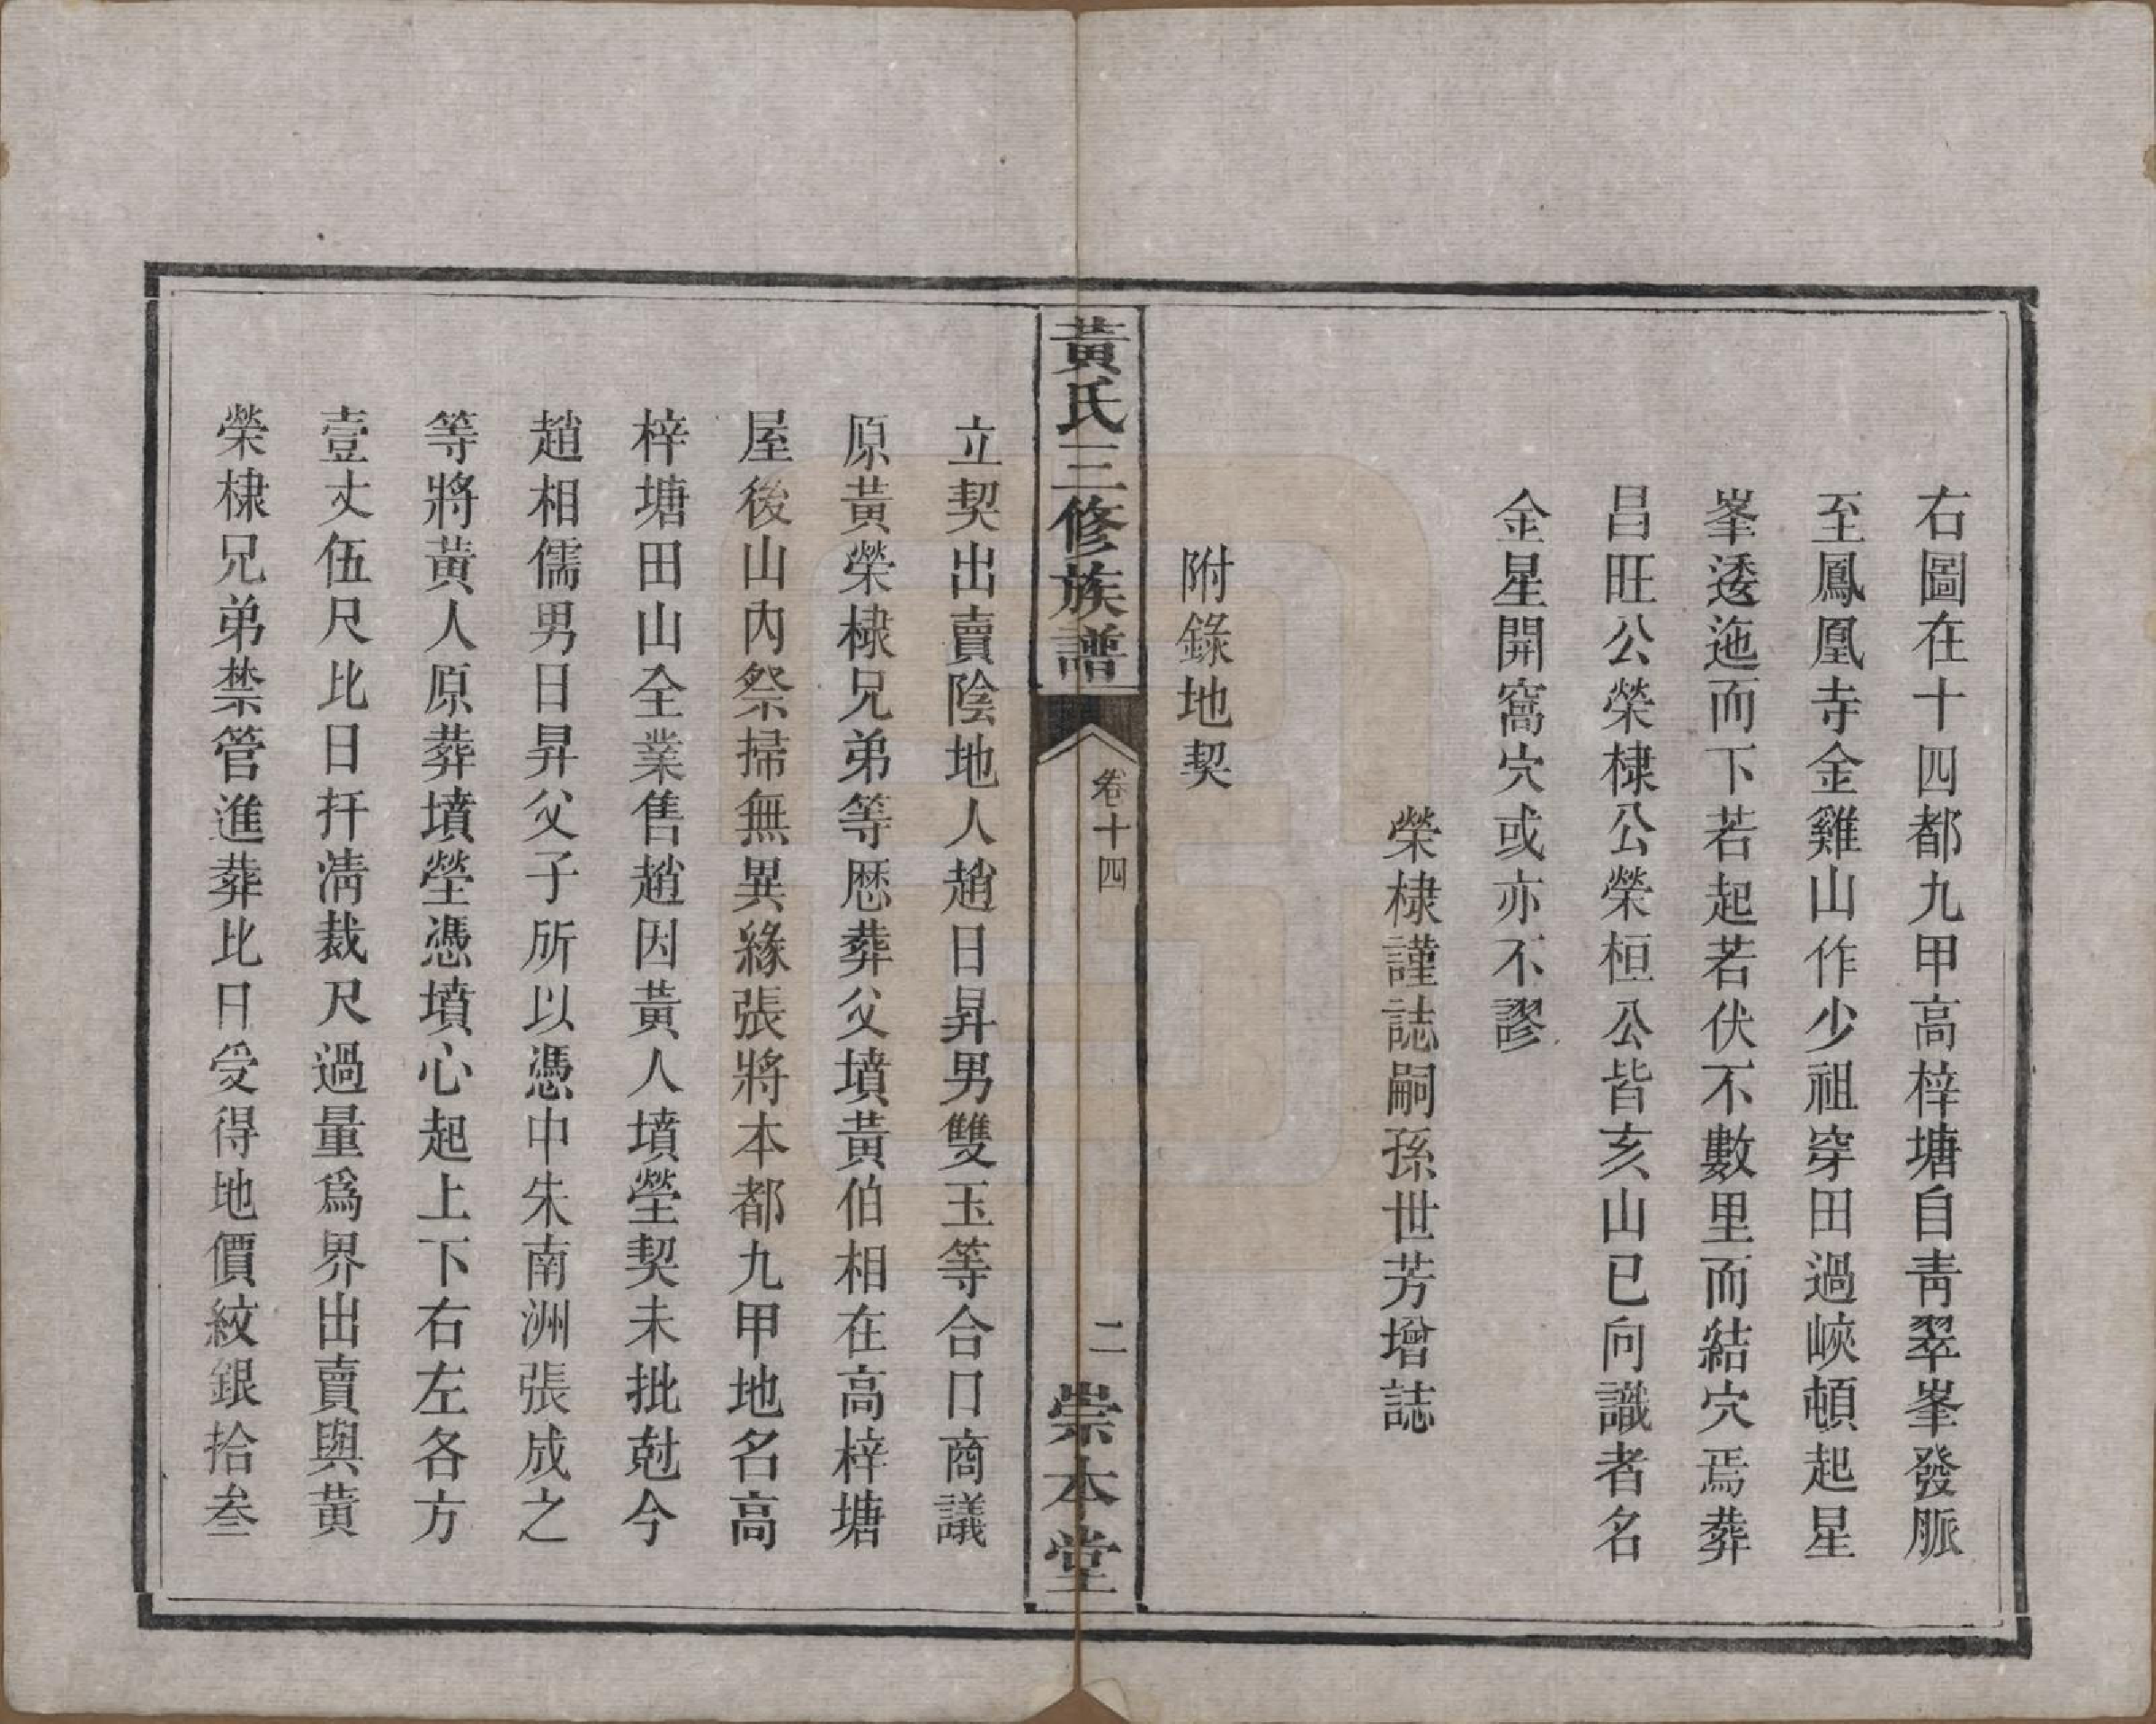 右圖在十四都九甲高梓塘自靑翠峯發脈
至鳳凰寺金雞山作少祖穿田過峽頓起星
峯逶迤而下若起若伏不數里而結穴焉葬
昌旺公榮棣公榮桓公皆亥山已向識者名
金星開窩穴或亦不謬
榮棣謹誌嗣孫世芳增誌
附錄地契
黃氏三修族譜
卷十四
二
崇本堂
立契出賣陰地人趙日昇男雙玉等合口商議
原黃榮棣兄弟等歷葬父墳黃伯相在高梓塘
屋後山內祭掃無異緣張將本都九甲地名高
梓塘田山全業售趙因黃人墳塋契未批尅今
趙相儒男日昇父子所以憑中朱南洲張成之
等將黃人原葬墳塋憑墳心起上下右左各方
壹丈伍尺比日扦淸裁尺過量爲界出賣與黃
榮棣兄弟禁管進葬比日受得地價紋銀拾叁